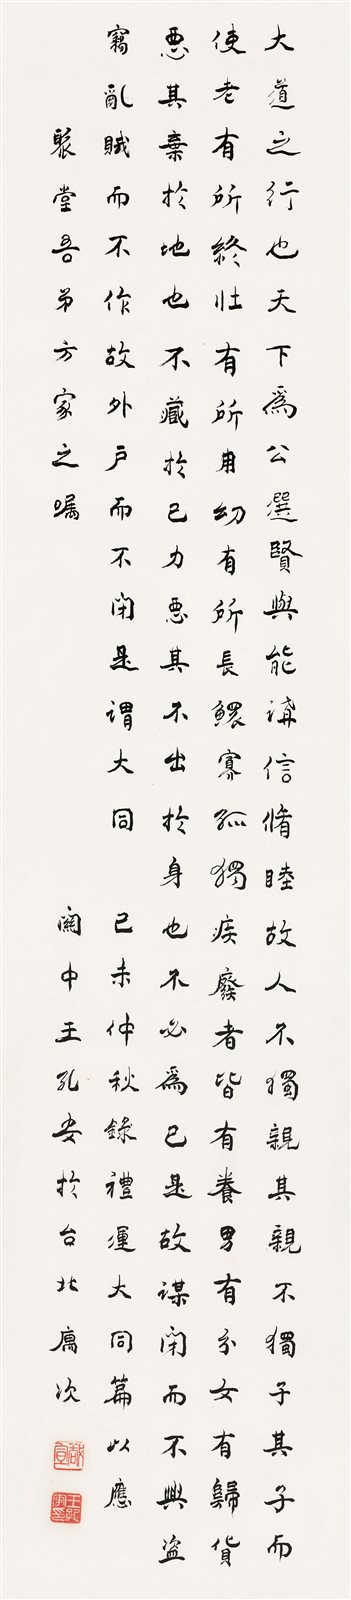 大道之行也天下為公選賢與能講信脩睦故人不獨親其親不獨子其子而
使老有所終壯有所用幼有所長鰥寡孤獨疾廢者皆有養男有分女有歸貨
惡其棄於地也不藏於己力惡其不出於身也不必為己是故謀閉而不興盜
竊亂賊而不作故外戶而不閉是謂大同 己未仲秋錄禮運大同篇以應
聚堂吾弟方家之囑 關中王孔安於台北庽次